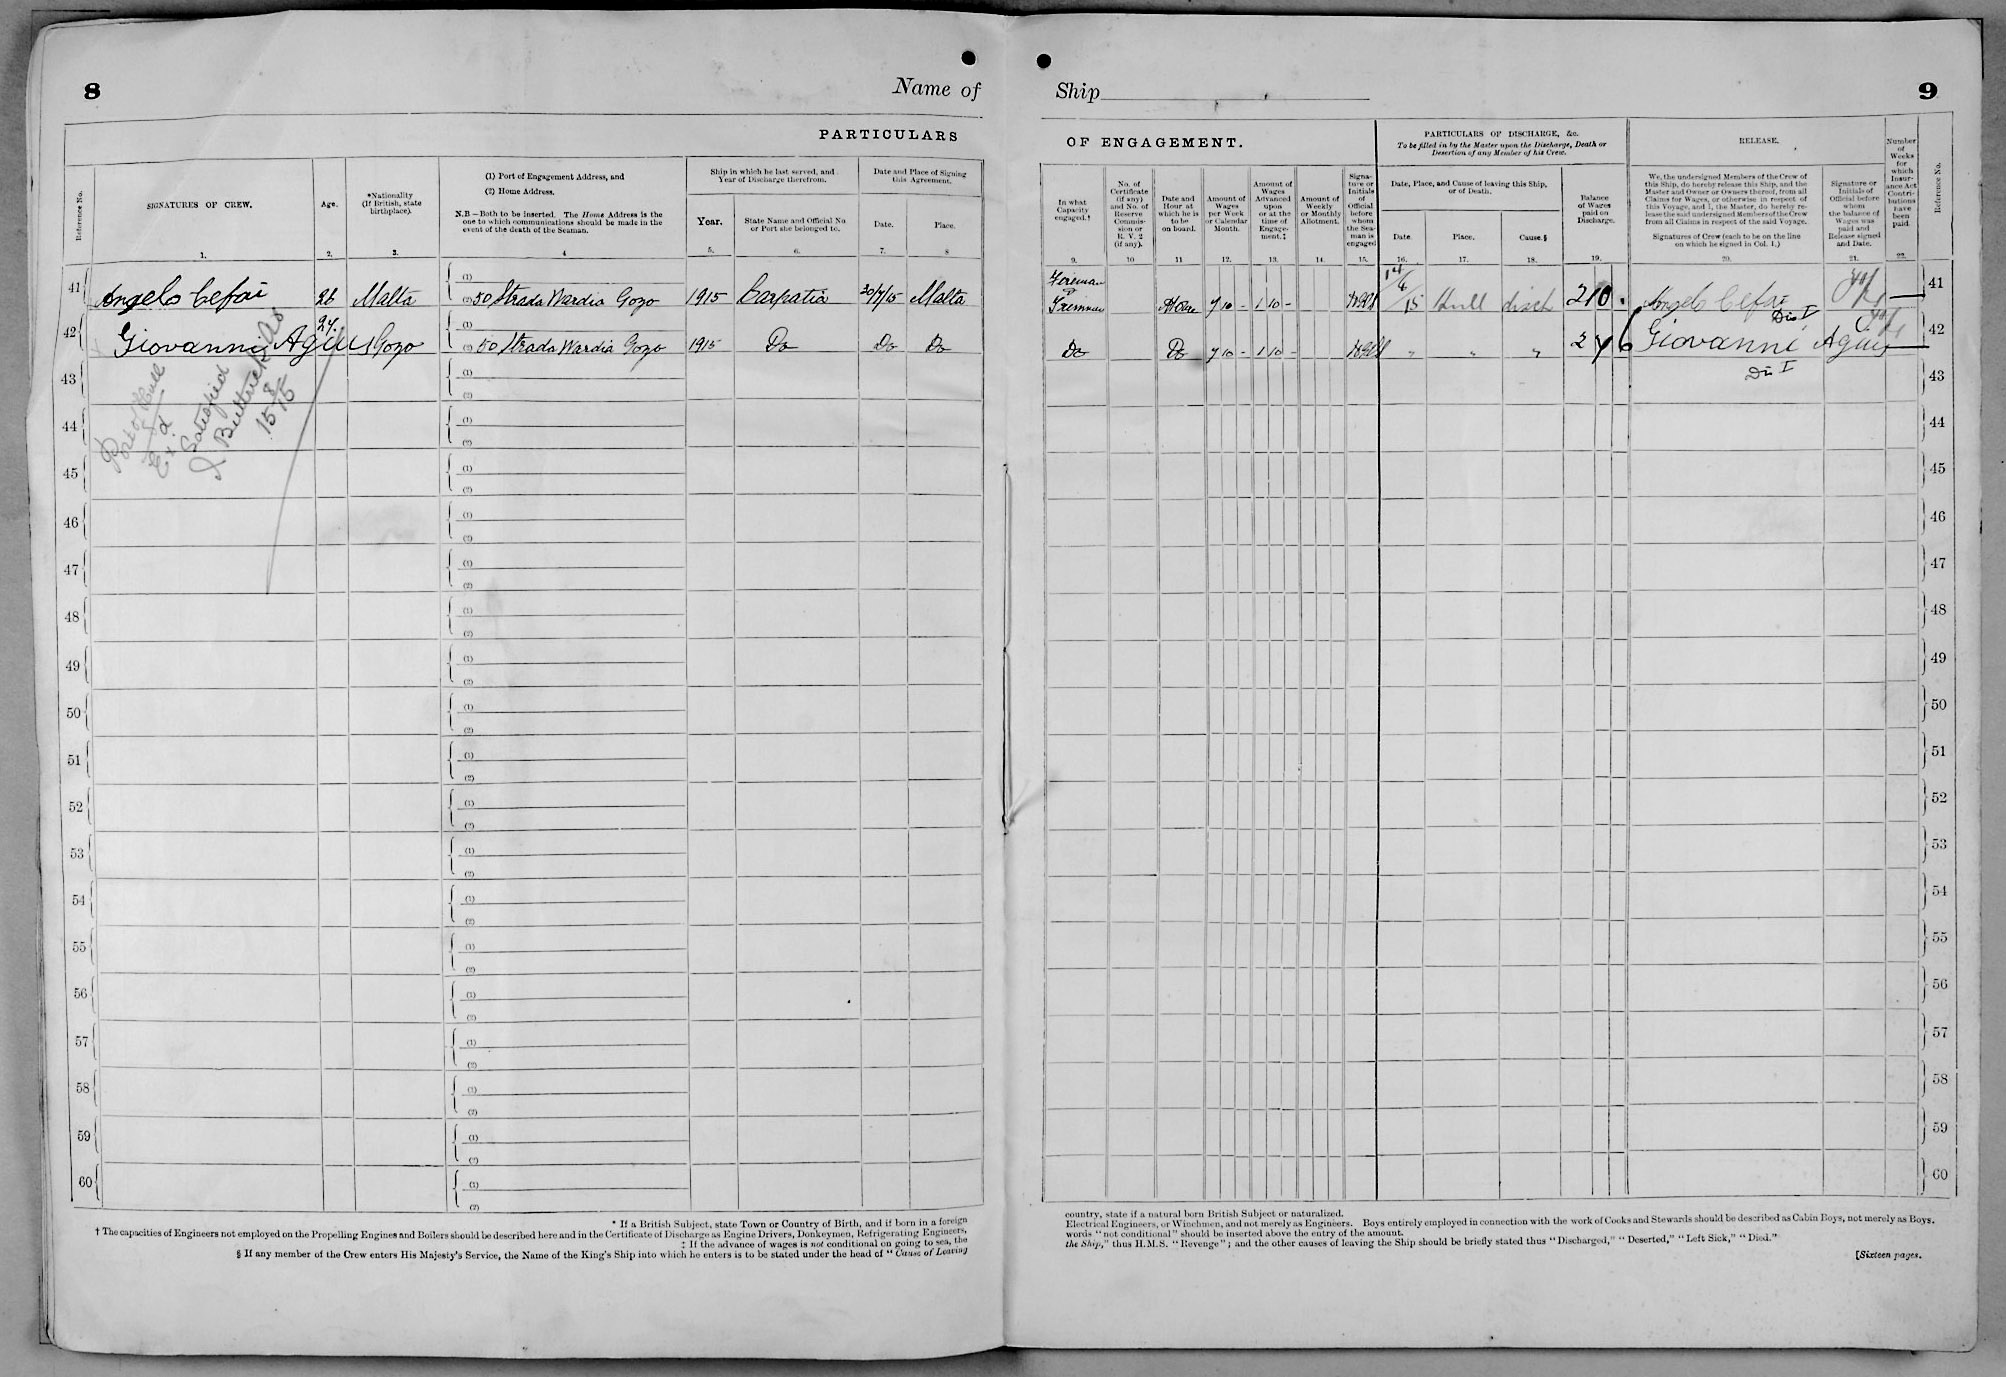 8
Name of
Ship
9
PARTICULARS
OF ENGAGEMENT.
PARTICULARS OF DISCHARGE, &c.
To be filled in by the Master upon the Discharge, Death or
Desertion of any Member of his Crew.
RELEASE.
Number
of
Weeks
for
which
Insur-
ance Act
Contri-
butions
have
been
paid.
Reference No.
SIGNATURES OF CREW.
Age.
*Nationality
(If British, state
birthplace).
(1) Port of Engagement Address, and
(2) Home Address.
N.B—Both to be inserted. The Home Address is the
one to which communications should be made in the
event of the death of the Seaman.
Ship in which he last served, and
Year of Discharge therefrom.
Year.
State Name and Official No.
or Port she belonged to.
Date and Place of Signing
this Agreement.
Date.
Place.
In what
Capacity
engaged.†
No. of
Certificate
(if any)
and No. of
Reserve
Commis-
sion or
R. V. 2
(if any).
Date and
Hour at
which he is
to be
on board.
Amount of
Wages
per Week
or Calendar
Month.
Amount of
Wages
Advanced
upon
or at the
time of
Engage-
ment.‡
Amount of
Weekly
or Monthly
Allotment.
Signa-
ture or
Initials
of
Official
before
whom
the Sea-
man is
engaged
Date, Place, and Cause of leaving this Ship,
or of Death.
Date.
Place.
Cause.§
Balance
of Wages
paid on
Discharge.
We, the undersigned Members of the Crew of
this Ship, do hereby release this Ship, and the
Master and Owner or Owners thereof, from all
Claims for Wages, or otherwise in respect of
this Voyage, and I, the Master, do hereby re-
lease the said undersigned Members of the Crew
from all Claims in respect of the said Voyage.
Signatures of Crew (each to be on the line
on which he signed in Col. 1.)
Signature or
Initials of
Official before
whom
the balance of
Wages was
paid and
Release signed
and Date.
Reference No.
1. 2. 3. 4 5. 6. 7. 8 9. 10 11 12. 13. 14. 15. 16. 17. 18. 19. 20. 21. 22.
41 (1) Fireman 14/6 41
Angelo Cefai 26 Malta (2) 50 Strada Wardia Gozo 1915 Carpatia 30/7/15 Malta & Trimmer At Once 7 10 - 1 10 - 15 Hull disch 2 10 . Angelo Cefai
Dis I
42 24. (1) 42
Giovanni Agius Gozo (2) 50 Strada Wardia Gozo 1915 Do Do Do Do Do 7 10 - 1 10 - " " " 2 7 6 Giovanni Agius
Dis I
Port of Hull
Satisfied
15 8/15
43 (1) (2) 43
44 (1) (2) 44
45 (1) (2) 45
46 (1) (2) 46
47 (1) (2) 47
48 (1) (2) 48
49 (1) (2) 49
50 (1) (2) 50
51 (1) (2) 51
52 (1) (2) 52
53 (1) (2) 53
54 (1) (2) 54
55 (1) (2) 55
56 (1) (2) 56
57 (1) (2) 57
58 (1) (2) 58
59 (1) (2) 59
60 (1) (2) 60
* If a British Subject, state Town or Country of Birth, and if born in a foreign
country, state if a natural born British Subject or naturalized.
† The capacities of Engineers not employed on the Propelling Engines and Boilers should be described here and in the Certificate of Discharge as Engine Drivers, Donkeymen, Refrigerating Engineers,
Electrical Engineers, or Winchmen, and not merely as Engineers. Boys entirely employed in connection with the work of Cooks and Stewards should be described as Cabin Boys, not merely as Boys.
‡ If the advance of wages is not conditional on going to sea, the
words "not conditional" should be inserted above the entry of the amount.
§ If any member of the Crew enters His Majesty's Service, the Name of the King's Ship into which he enters is to be stated under the head of "Cause of Leaving
the Ship," thus H.M.S. "Revenge"; and the other causes of leaving the Ship should be briefly stated thus "Discharged," "Deserted," "Left Sick," "Died."
[Sixteen pages.